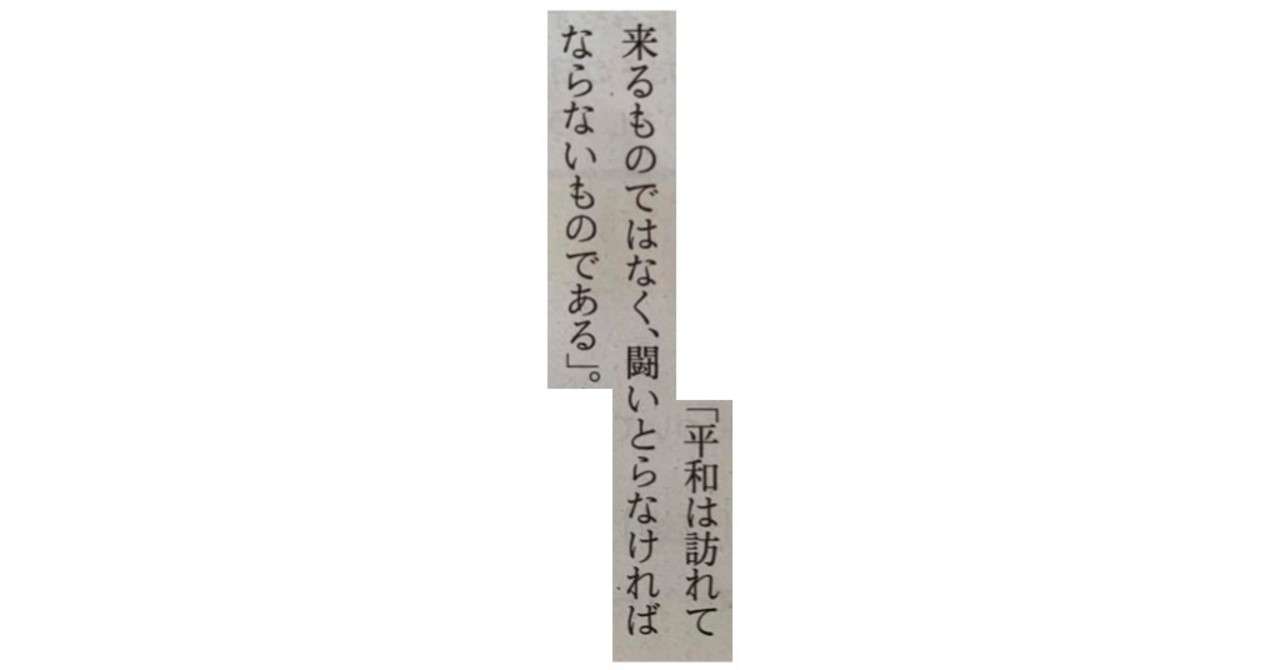 「平和は訪れて
来るものではなく、闘いとらなければ
ならないものである」。